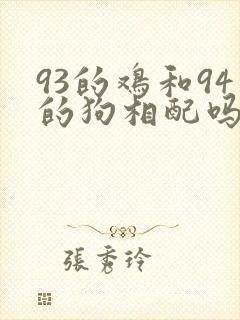 93的鸡和94
的狗相配吗
張秀玲